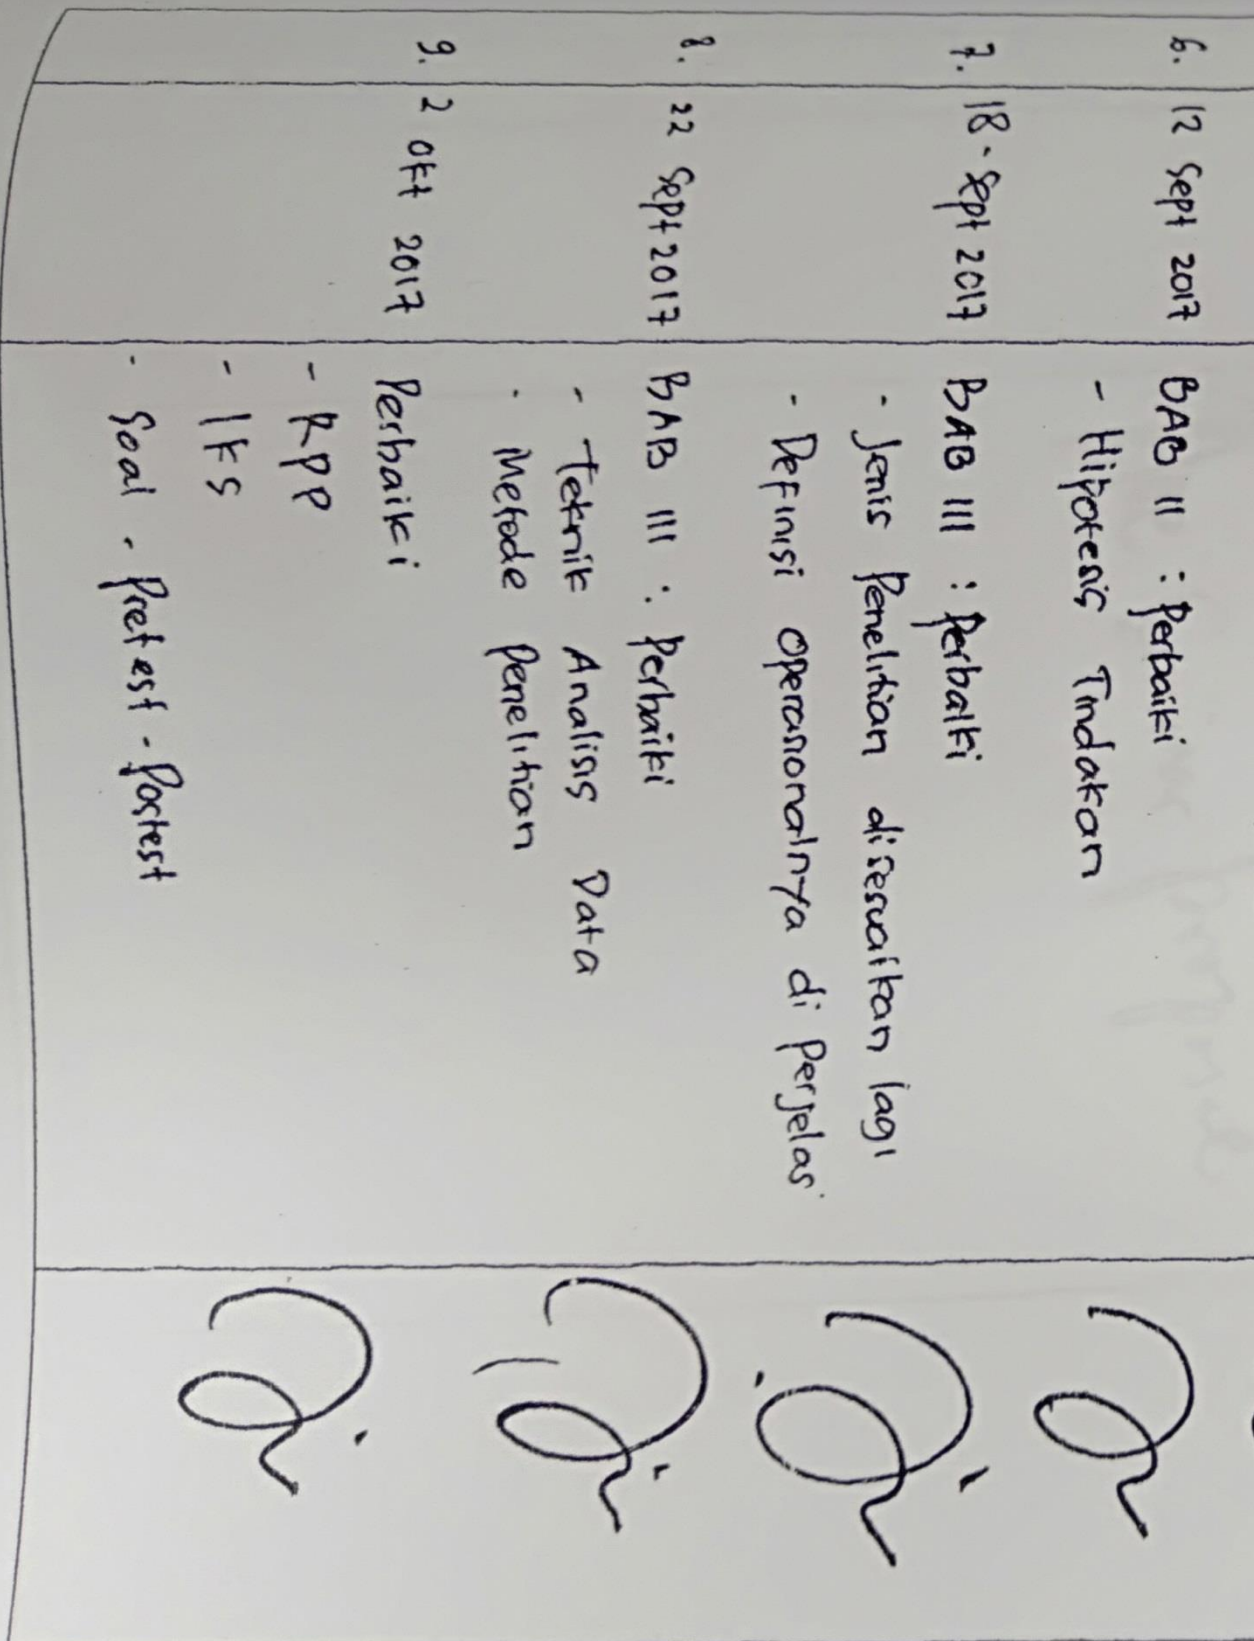 6. 12 Sept 2017 BAB II : Perbaiki
- Hipotesis Tindakan
7. 18 - Sept 2017 BAB III : Perbaiki
- Jenis Penelitian disesuaikan lagi
- Definisi operasionalnya di Perjelas
8. 22 Sept 2017 BAB III : Perbaiki
- Teknik Analisis Data
- Metode Penelitian
9. 2 Okt 2017 Perbaiki
- RPP
- lks
- Soal - Pretest - Postest